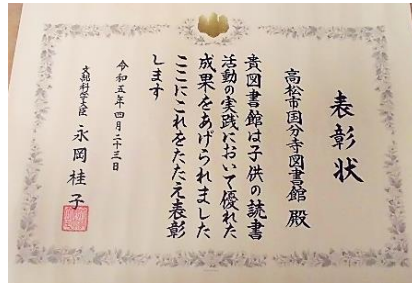 表彰状
高松市国分寺図書館 殿
貴図書館は子供の読書
活動の実践において優れた
成果をあげられました
ここにこれをたたえ表彰
します
令和五年四月二十三日
文部科学大臣 永岡桂子